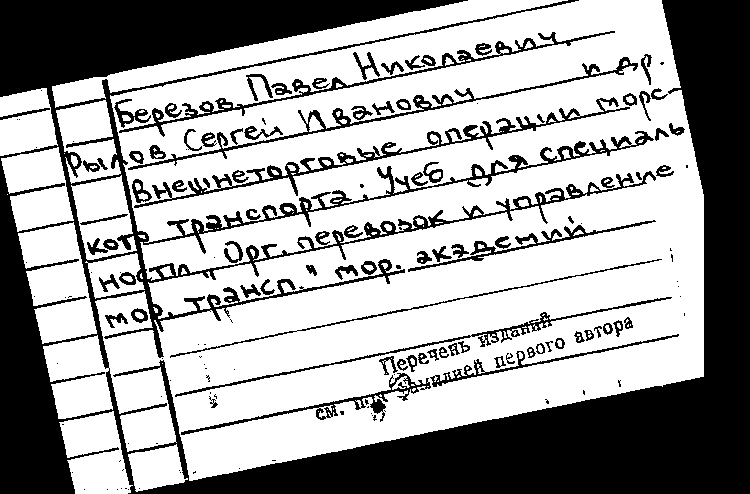 Березов, Павел Николаевич.
Рылов, Сергей Иванович и др.
Внешнеторговые операции морс-
кого транспорта: Учеб. для специаль
ности "Орг. перевозок и управление
мор. трансп." мор. академий.
Перечень изданий
см. под фамилией первого автора